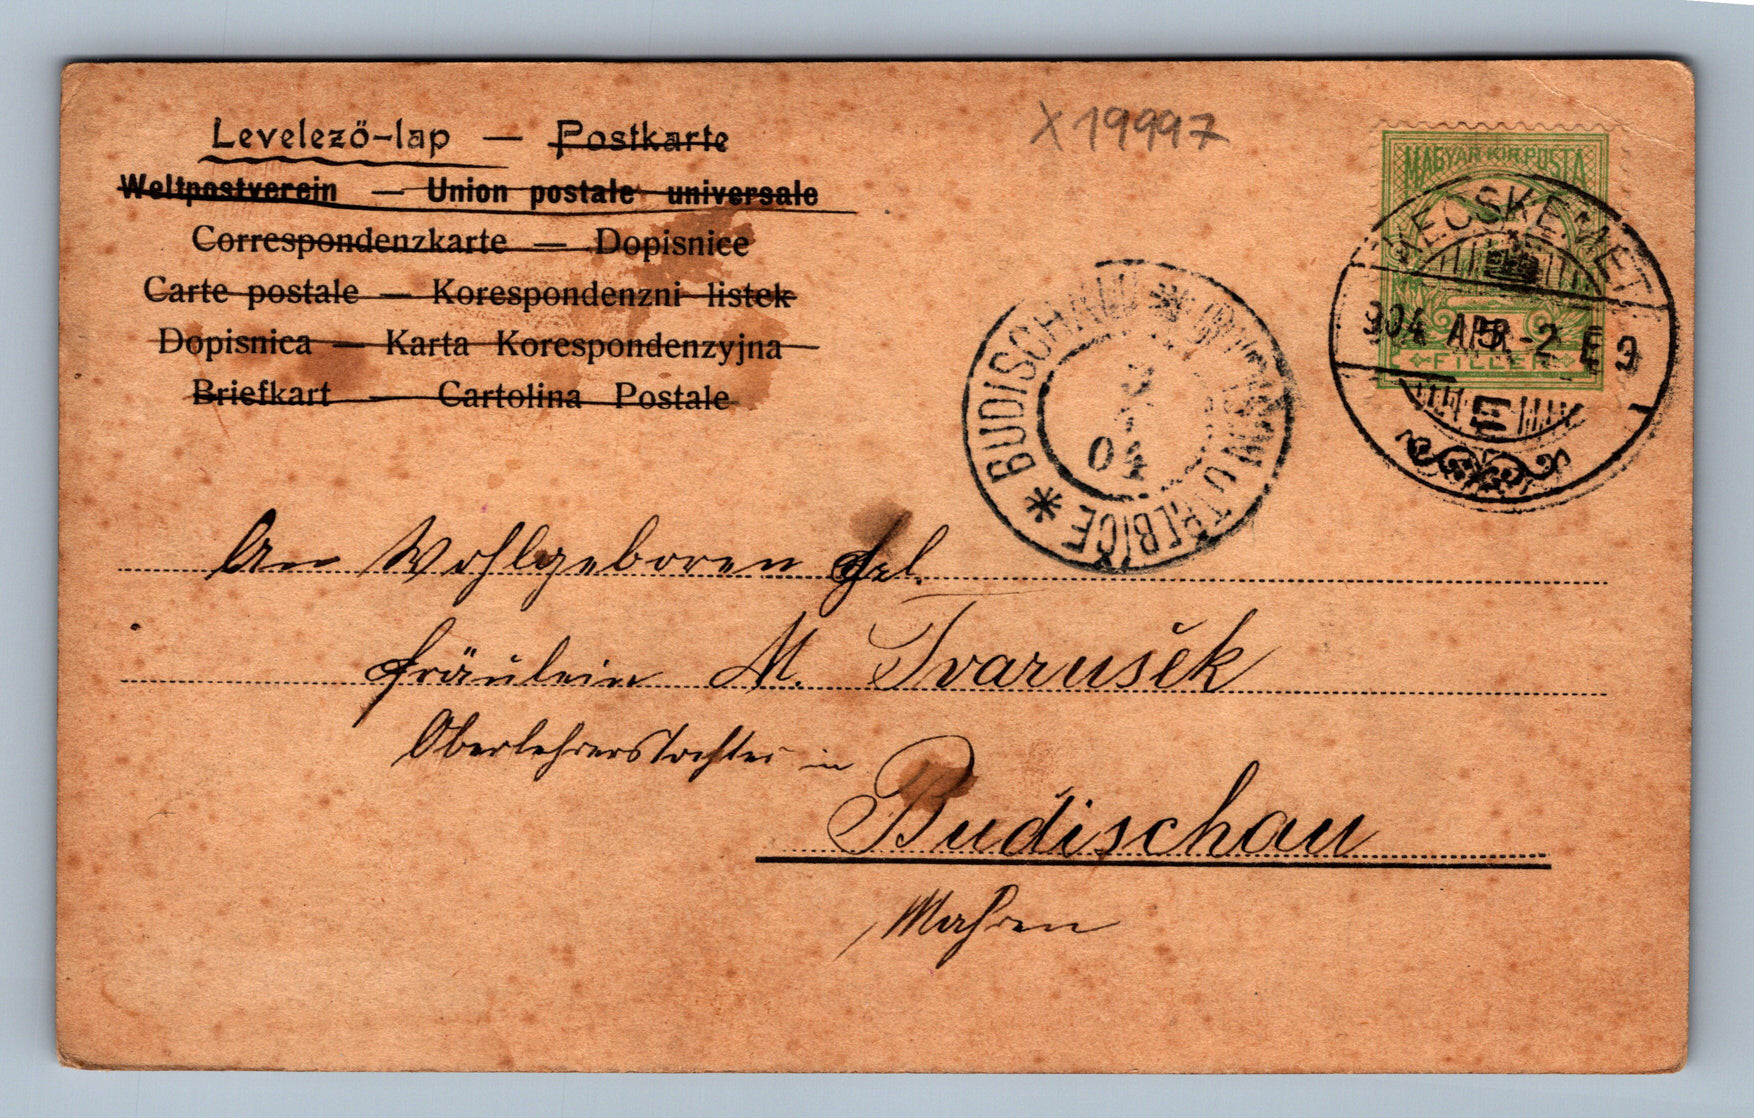 Levelező-lap — Postkarte
Weltpostverein — Union postale universale
Correspondenzkarte — Dopisnice
Carte postale — Korespondenzni listek
Dopisnica — Karta Korespondenzyjna
Briefkart — Cartolina Postale
X 19997
MAGYAR KIR. POSTA
KECSKEMÉT
904 APR -2 E 9
5
FILLER
E
* BUDISCHAU * BUDIŠOV U TŘEBÍČE
3
4
04
An Wohlgeboren
Fräulein M. Tvarušék
Oberlehrerstochter in
Budischau
Mähren